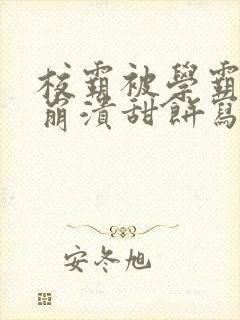 校霸被學霸
崩潰甜餅寫
安冬旭